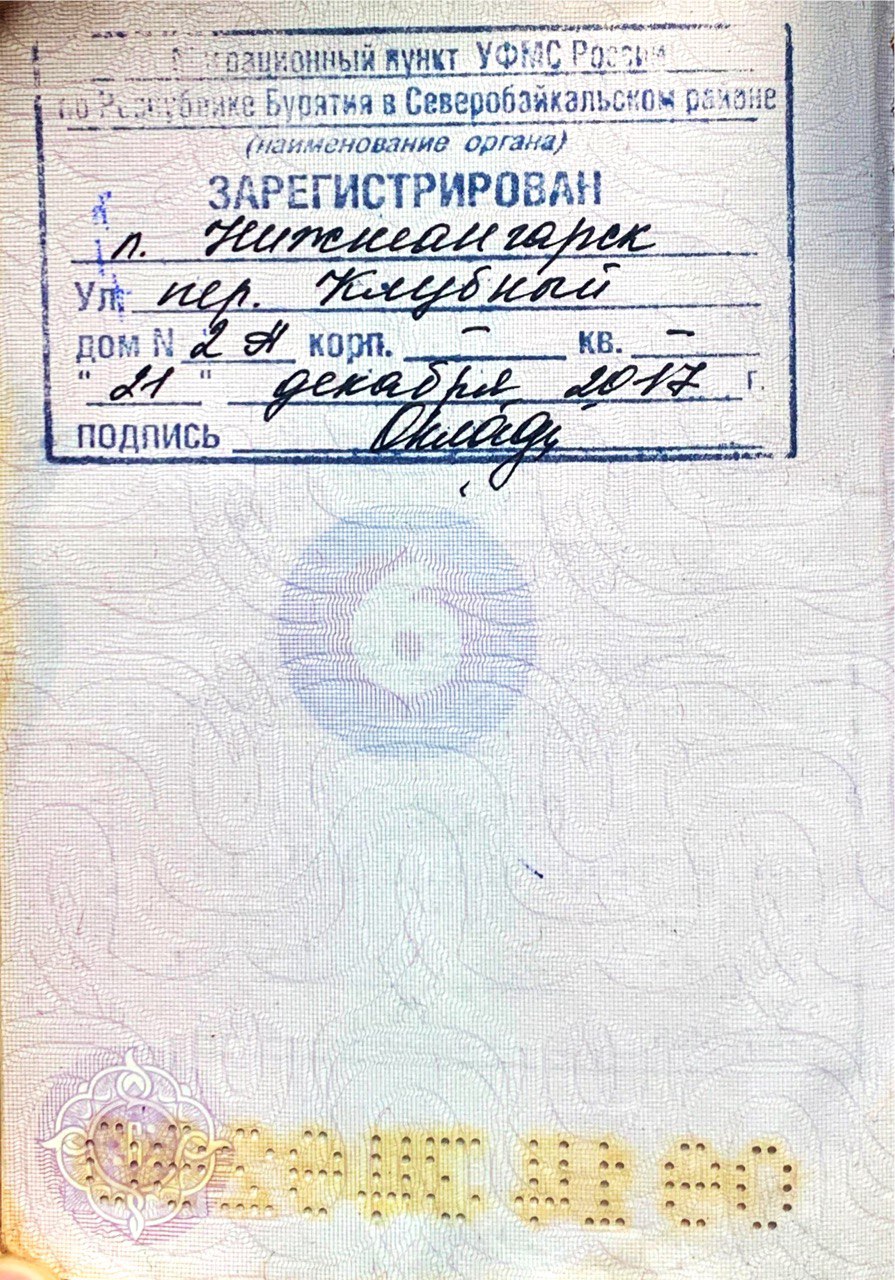 Миграционный пункт УФМС России
по Республике Бурятия в Северобайкальском районе
(наименование органа)
ЗАРЕГИСТРИРОВАН
п. Нижнеангарск
Ул. пер. Клубный
дом N 2 А корп. – кв. –
" 21 " декабря 2017 г.
подпись
6
6